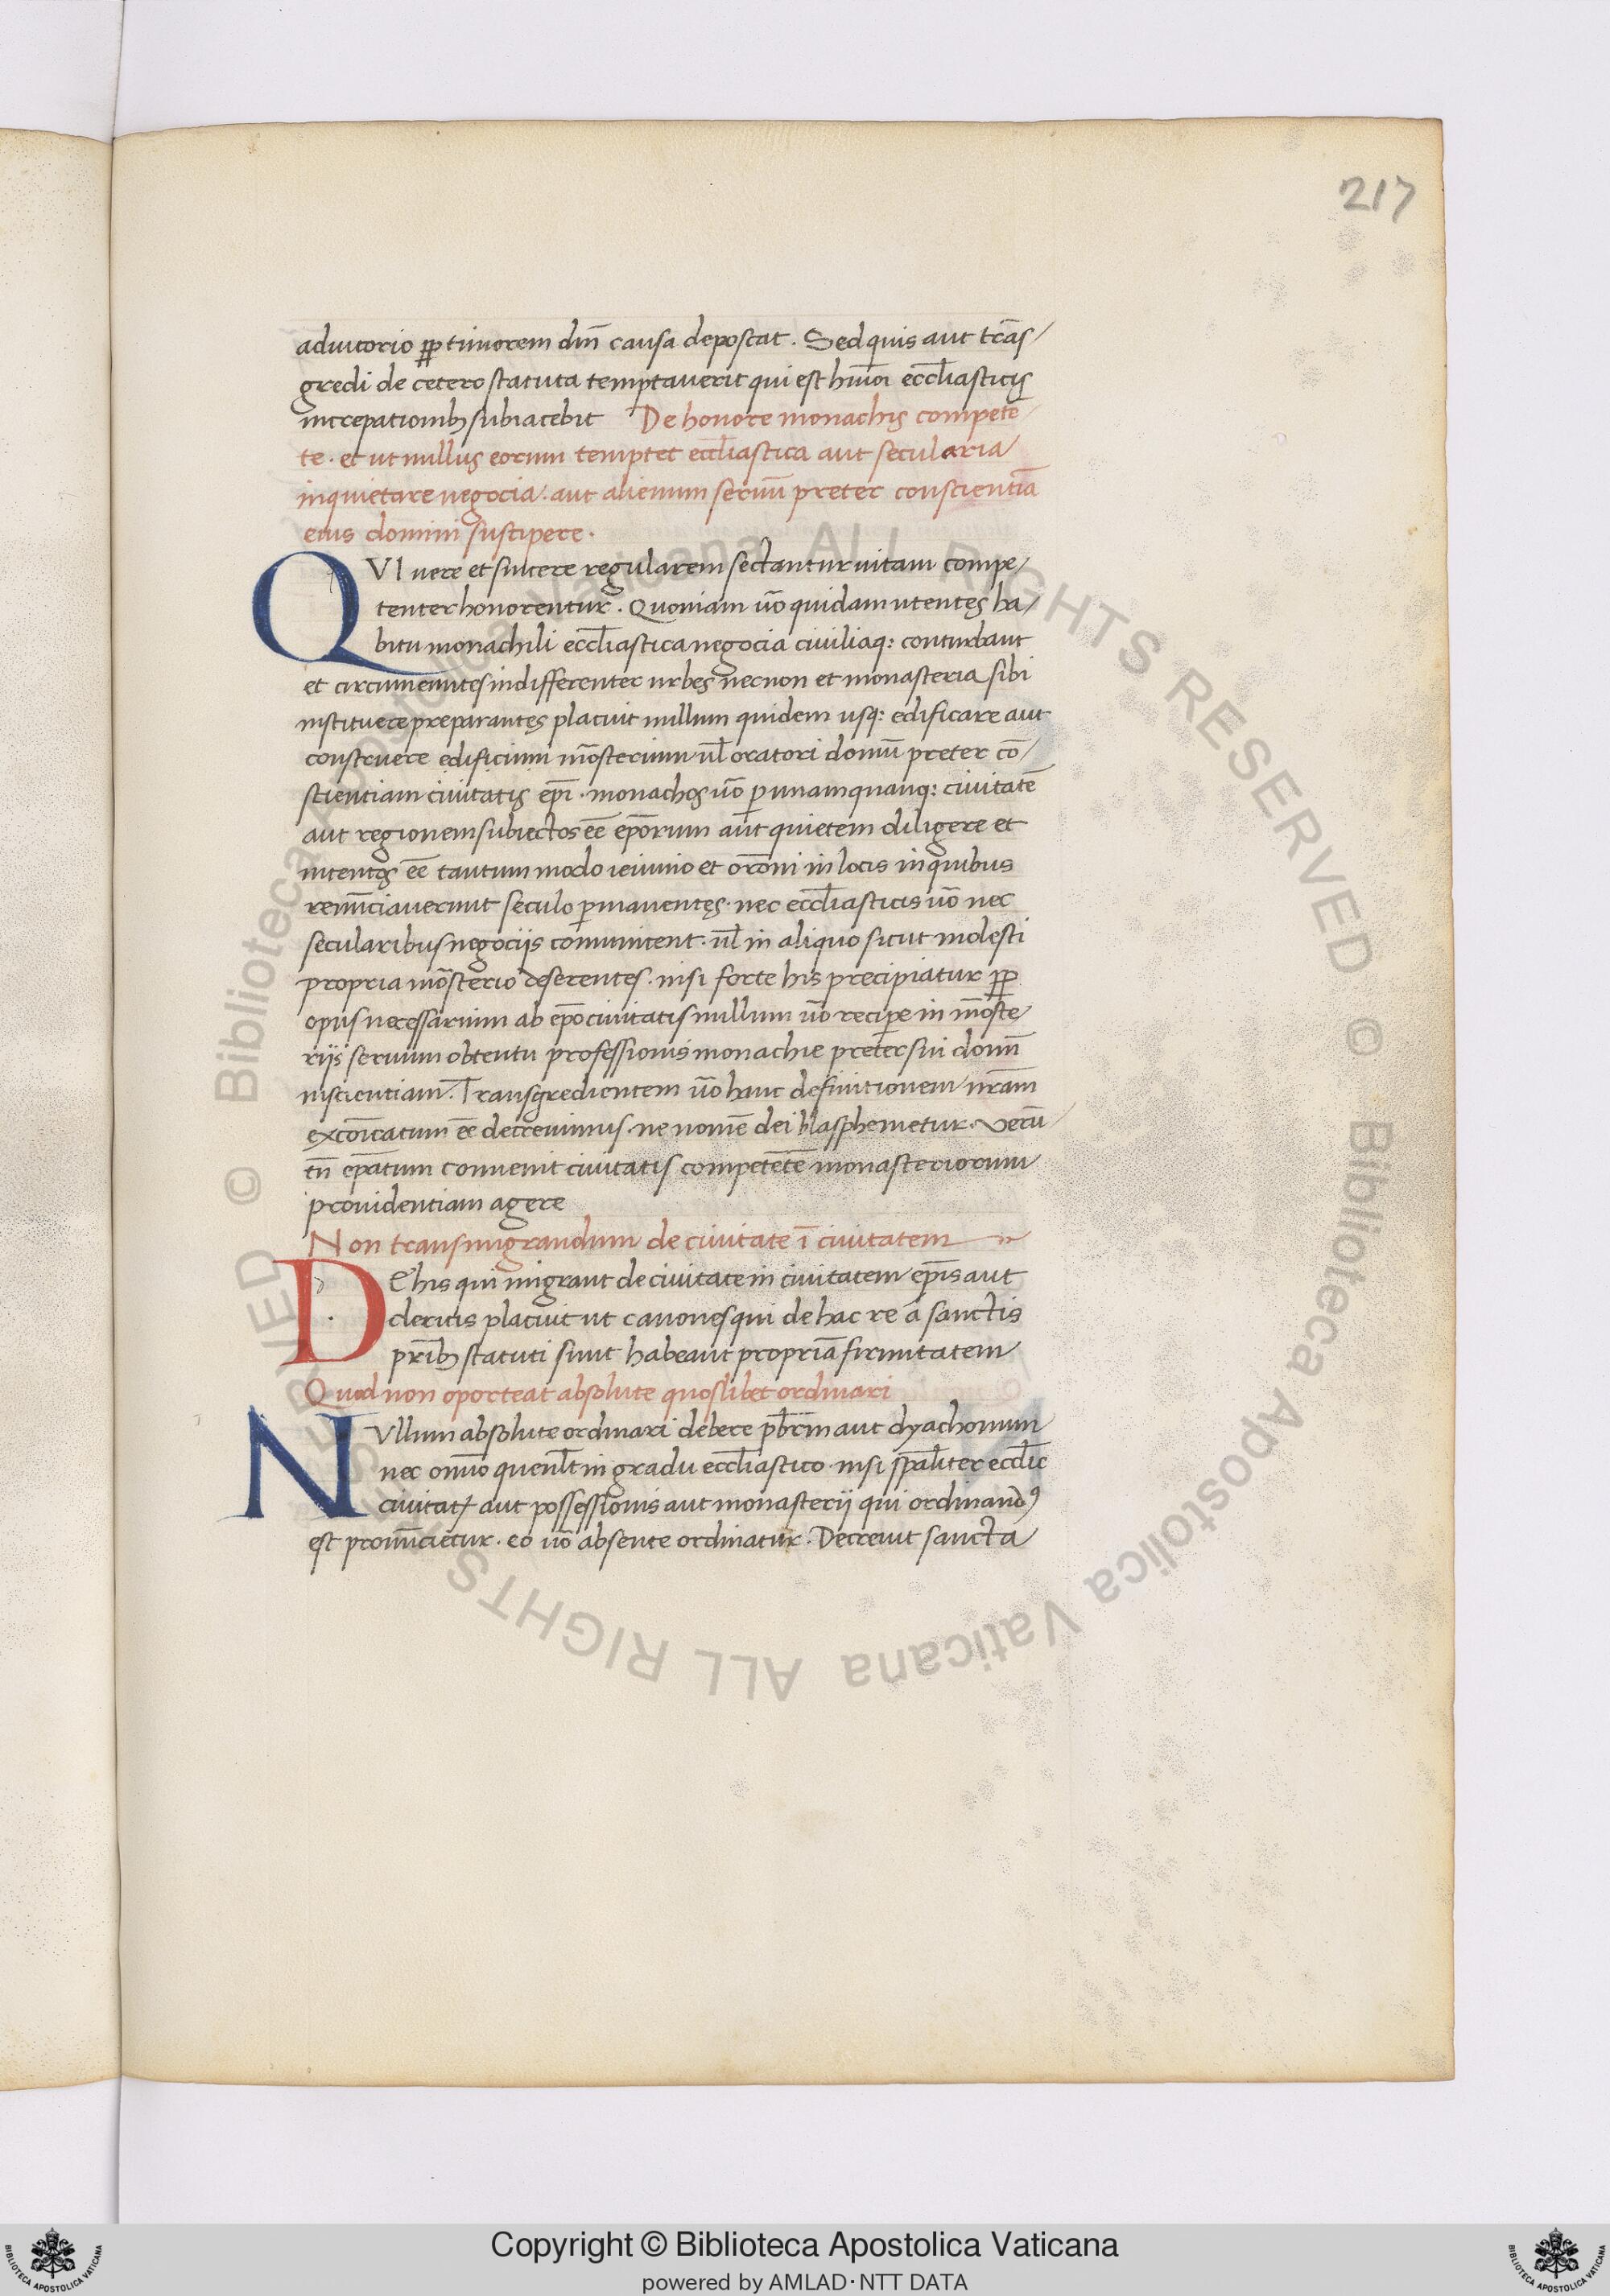 217
adiutorio ꝓp timorem dn̄i causa deposcat. Sed quis aut trās
gredi de cetero statuta temptaverit qui est hiu᷒oi eccl̄iasticis
increpationib; subiacebit De honore monachis compete
te. et ut nullus eorum temptet eccl̄iastica aut secularia
inquietare negocia. aut alienum seruū preter conscientiā
eius domini suscipere.
QVI uere et sincere regularem sectantur uitam compe
tenter honorentur. Quoniam ūo quidam utentes ha
bitu monachili eccl̄iastica negocia ciuiliaq: conturbant
et circumeuntes indifferenter urbes necnon et monasteria sibi
instituere preparantes placuit nullum quidem usq: edificare aut
construere edificium mōsterium ul̄ oratori domū preter cō
scientiam ciuitatis ep̄i. monachos ūo ꝑ unamquanq: ciuitatē
aut regionem subiectos eē ep̄orum aut quietem diligere et
intentos eē tantummodo ieiunio et orōni in locis in quibus
renūciaverunt seculo ꝑmanentes. nec eccl̄iasticis ūo nec
secularibus negociis cōmunicent. ul̄ in aliquo sicut molesti
propria mōsterio deserentes. nisi forte his precipiatur ꝓp
opus necessarium ab ep̄o ciuitatis nullum ūo recipe in mōste
riis seruum obtentu professionis monachie preter sui domī
niscientiam. Transgredientem ūo hanc definitionem nr̄am
excōīcatum eē decrevimus. ne nomē dei blasphemetur. verū
tn̄ ep̄atum convenit ciuitatis competētē monasteriorum
prouidentiam agere
Non transmigrandum de ciuitate ī ciuitatem
DE his qui migrant de ciuitate in ciuitatem ep̄is aut
clericis placuit ut canones qui de hac re a sanctis
pr̄ib; statuti sunt habeant propriā firmitatem
Quod non oporteat absolute quoslibet ordinari
NVllum absolute ordinari debere pb̄rm aut dyachonum
nec omīo quenl̄t in gradu eccl̄iastico. nisi sp̄aliter eccl̄ie
ciuitatꝭ aut possessionis aut monasterii qui ordinandꝰ
est pronūcietur. eo ūo absente ordinatur. Decreuit sancta
© Biblioteca Apostolica Vaticana ALL RIGHTS RESERVED © Biblioteca Apostolica Vaticana ALL RIGHTS RESERVED
Copyright © Biblioteca Apostolica Vaticana
powered by AMLAD·NTT DATA
BIBLIOTECA APOSTOLICA VATICANA
BIBLIOTECA APOSTOLICA VATICANA